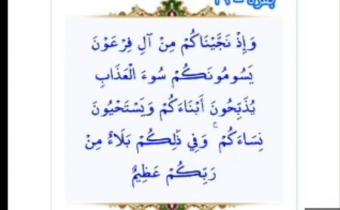 وَإِذْ نَجَّيْنَاكُمْ مِنْ آلِ فِرْعَوْنَ
يَسُومُونَكُمْ سُوءَ الْعَذَابِ
يُذَبِّحُونَ أَبْنَاءَكُمْ وَيَسْتَحْيُونَ
نِسَاءَكُمْ ۚ وَفِي ذَٰلِكُمْ بَلَاءٌ مِنْ
رَبِّكُمْ عَظِيمٌ